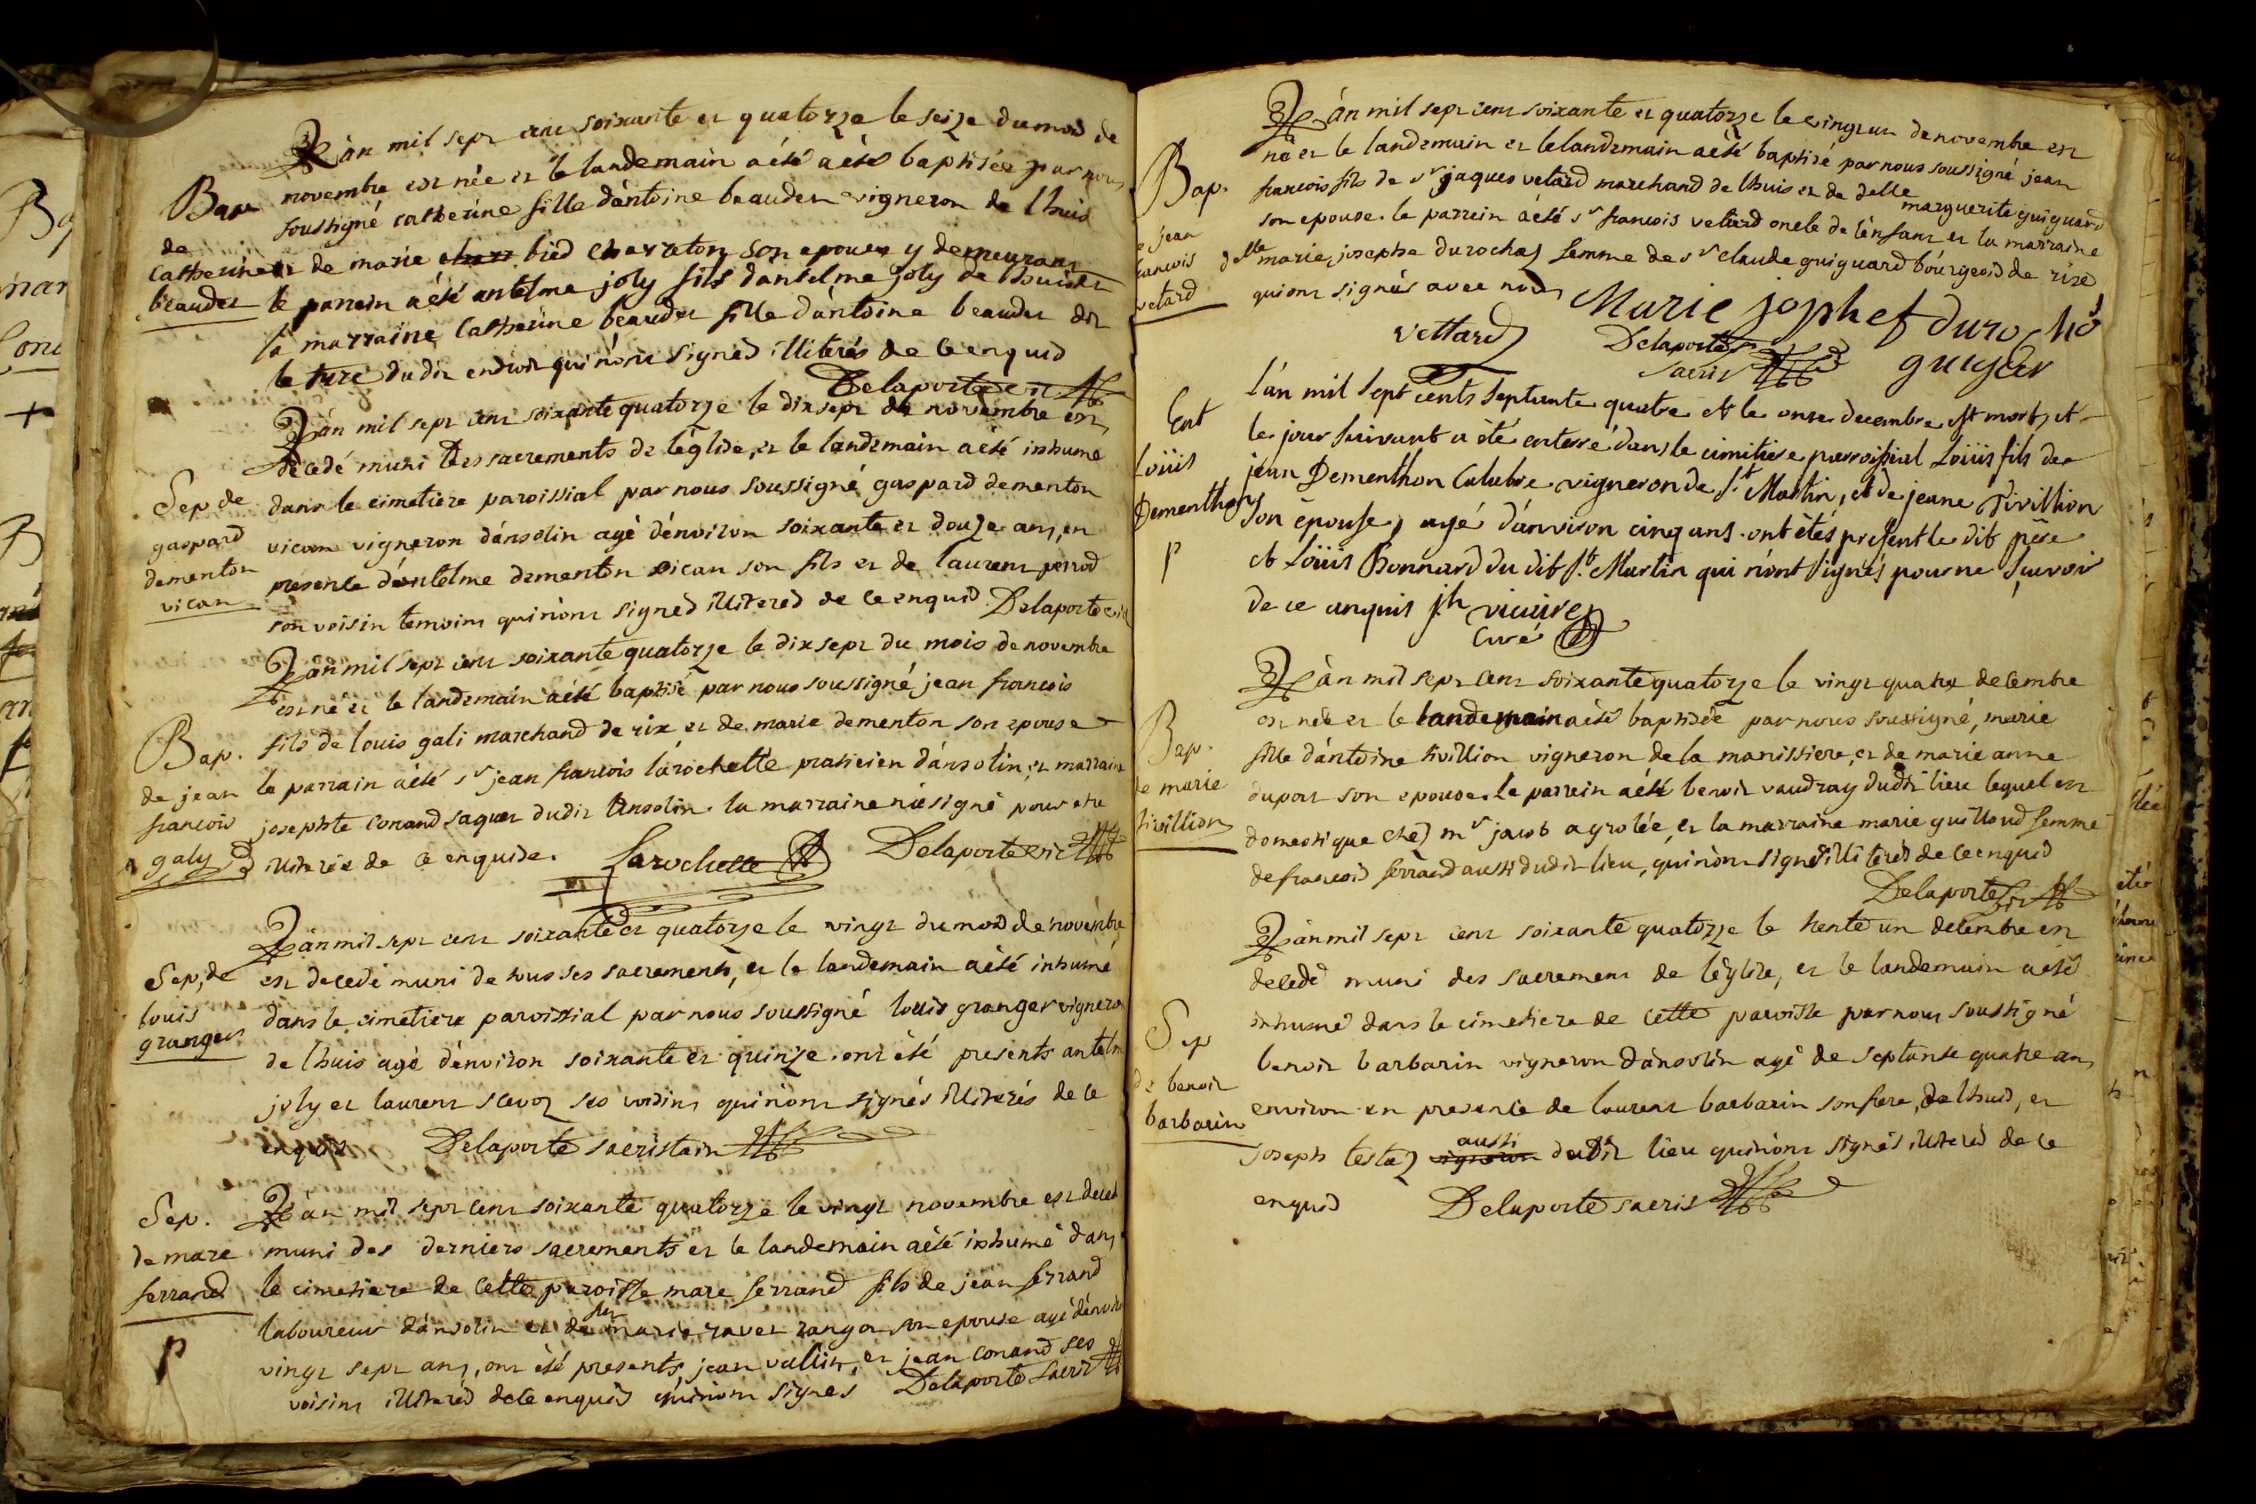 L'àn mil sept cent soixante et quatorze le seize du mois de
novembre est née et le landemain aété aété baptisée par nous
Bap
soussigné catherine fille d'àntoine beaudet vigneron de lhuis
de
catherine
et de marie bied charreton son epouse y demeurant
beaudet
le parrein a été antelme joly fils dantelme joly de lhuis et
la marraine catherine beaudet fille d'àntoine beaudet dit
le turc dudit endroit qui n'ont signés illiterés de ce enquis
Delaporte
L'àn mil sept cent soixante quatorze le dix sept de novembre est
decedé muni des sacrements de léglise, et le landemain aété inhumé
Sep de
dans le cimetiere paroissial par nous soussigné gaspard dementon
gaspard
vican vigneron d'ànsolin agé dénviron soixante et douze ans, en
dementon
presence d'antelme dementon vican son fils et de laurent perrod
vican
son voisin temoins qui n'ont signés illiterés de ce enquis Delaporte
L'àn mil sept cent soixante quatorze le dix sept du mois de novembre
est né et le landemain aété baptisé par nous soussigné jean francois
Bap.
fils de louis gali marchand de rix et de marie dementon son epouse
de jean
le parrain aété sr jean francois làrochette praticien d'ànsolin, et marraine
francois
josephte conand saquet dudit ànsolin. la marraine n'a signé pour etre
galy
illiterée de ce enquise. Larochette Delaporte
L'àn mil sept cent soixante et quatorze le vingt du mois de novembre
Sep, de
est decedé muni de tous ses sacrements, et le landemain aété inhumé
louis
dans le cimetiere paroissial par nous soussigné louis granger vigneron
granger
de lhuis agé d'énviron soixante et quinze. ont été presents antelm
joly et laurent ses voisins qui n'ont signés illiterés de ce
enquis Delaporte sacristain
Sep.
L'àn mil sept cent soixante quatorze le vingt novembre est deced
de marc
muni des derniers sacrements et le landemain aété inhumé dans
ferrand
le cimetiere de cette paroisse marc ferrand fils de jean ferrand
laboureur d'ànsolin et de marie son epouse agé d'énviron
p
vingt sept ans, ont été presents, jean vallin, et jean conand ses
voisins illiterés de ce enquis qui n'ont signés Delaporte sacris
L'àn mil sept cent soixante et quatorze le vingt un de novembre est
né et le landemain et le landemain aété baptisé par nous soussigné jean
Bap.
francois fils de sr jaques vetard marchand de lhuis et de delle marguerite guiguard
son epouse. le parrein aété sr francois vetard oncle de l'énfant et la marraine
e jean
francois
delle marie josephe durochas femme de sr claude guiguard bourgeois de rixe
vetard
qui ont signés avec nous Marie josphet durocho
Vettard Delaporte
sacris
l'àn mil sept cents septante quatre et le onze decembre est mort, et
Ent
le jour suivant a été enterré dans le cimitiere parroissial Loüis fils de
Loüis
jean Dementhon Calabre vigneron de St. Martin, et de jeane Tivillion
Dementhon
son épouse, agé d'ànviron cinq ans. ont étés present le dit père
p
et Loüis Bonnard du dit St. Martin qui n'ont signés pour ne sçavoir
de ce anquis
Curé
L'àn mil sept cent soixante quatorze le vingt quatre decembre
est née et le landemain aété baptisée par nous soussigné, marie
Bap.
fille d'àntoine tivillion vigneron de la manissiere, et de marie anne
de marie
duport son epouse. le parrein aété benoit vaudray dudit lieu lequel est
tivillion
domestique chez mr jacob agrolée, et la marraine marie guilloud femme
de francois ferrand aussi dudit lieu, qui n'ont signés illiterés de ce enquis
Delaporte
L'àn mil sept cent soixante quatorze le trente un decembre est
decedé muni des sacrement de l'église, et le landemain aeté
inhumé dans le cimetiere de cette paroisse par nous soussigné
Sep
benoit barbarin vigneron d'ànsolin agé de septante quatre ans
de benoit
environ en presence de laurent barbarin son frere, de lhuis, et
barbarin
joseph testaz aussi dudit lieu qui n'ont signés illiterés de ce
enquis Delaporte sacris